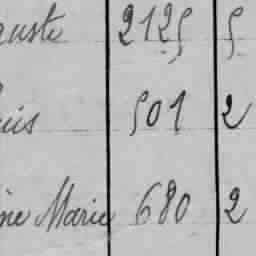 guste 2125 5
uis 501 2
ine Marie 680 2